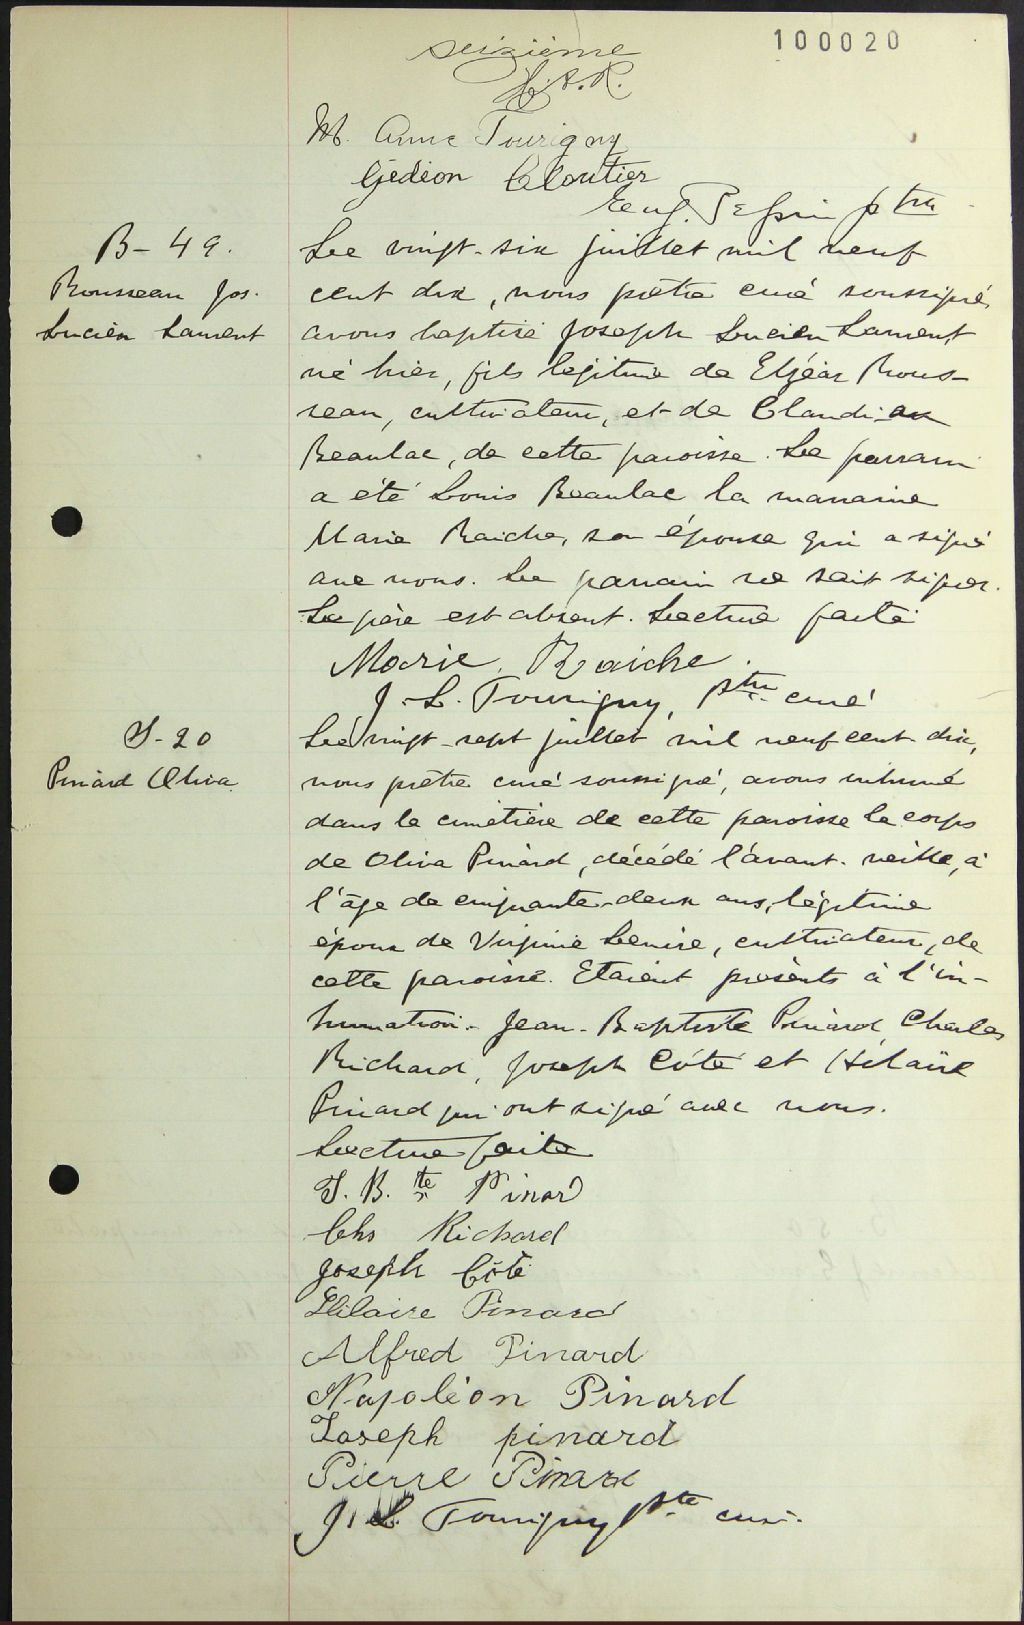 100020
seizième
M. Anne Tourigny
Gédéon Cloutier
Eug. Pepin ptre
B-49.
Rousseau Jos.
Lucien Laurent
Le vingt-six juillet mil neuf
cent dix, nous prêtre curé soussigné,
avons baptisé Joseph Lucien Laurent
né hier, fils légitime de Elzéar Rous-
seau, cultivateur, et de Claudia
Beaulac, de cette paroisse. Le parrain
a été Louis Beaulac la marraine
Marie Raiche, son épouse qui a signé
avec nous. Le parrain ne sait signer.
Le père est absent. Lecture faite
Marie Raiche.
J. L. Tourigny, Ptre curé
S-20
Pinard Oliva
Le vingt-sept juillet mil neuf cent dix,
nous prêtre curé soussigné, avons inhumé
dans le cimetière de cette paroisse le corps
de Oliva Pinard, décédé l'avant-veille, à
l'âge de cinquante-deux ans, légitime
époux de Virginie Lemire, cultivateur, de
cette paroisse. Etaient présents à l'in-
humation. Jean-Baptiste Pinard, Charles
Richard, Joseph Côté et Hilaire
Pinard qui ont signé avec nous.
Lecture faite
J. B.te Pinard
Chs Richard
Joseph Côté
Hilaire Pinard
Alfred Pinard
Napoléon Pinard
Joseph pinard
Pierre Pinard
J. L. Tourigny Ptre curé.